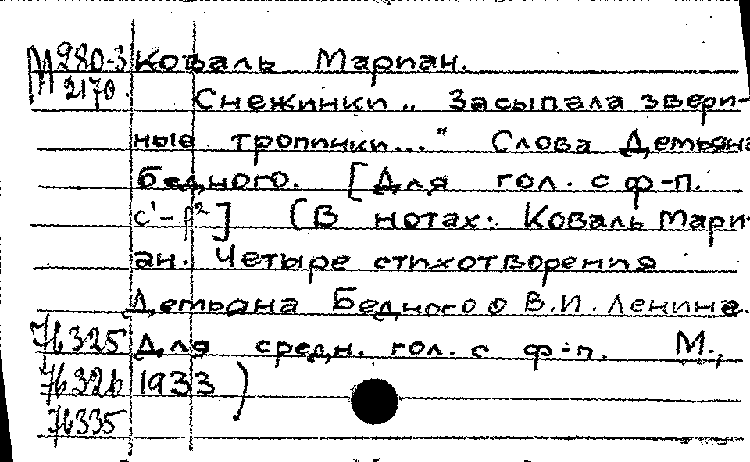 М 280-3 Коваль Мариан.
2170. Снежинки „ Засыпала звери-
ные тропинки..." Слова Демьяна
Бедного. [Для гол. с ф-п.
с¹-f²] (В нотах: Коваль Мари-
ан. Четыре стихотворения
Демьяна Бедного о В.И. Ленине.
76325 Для средн. гол. с ф-п. М.,
76326 1933 )
76335